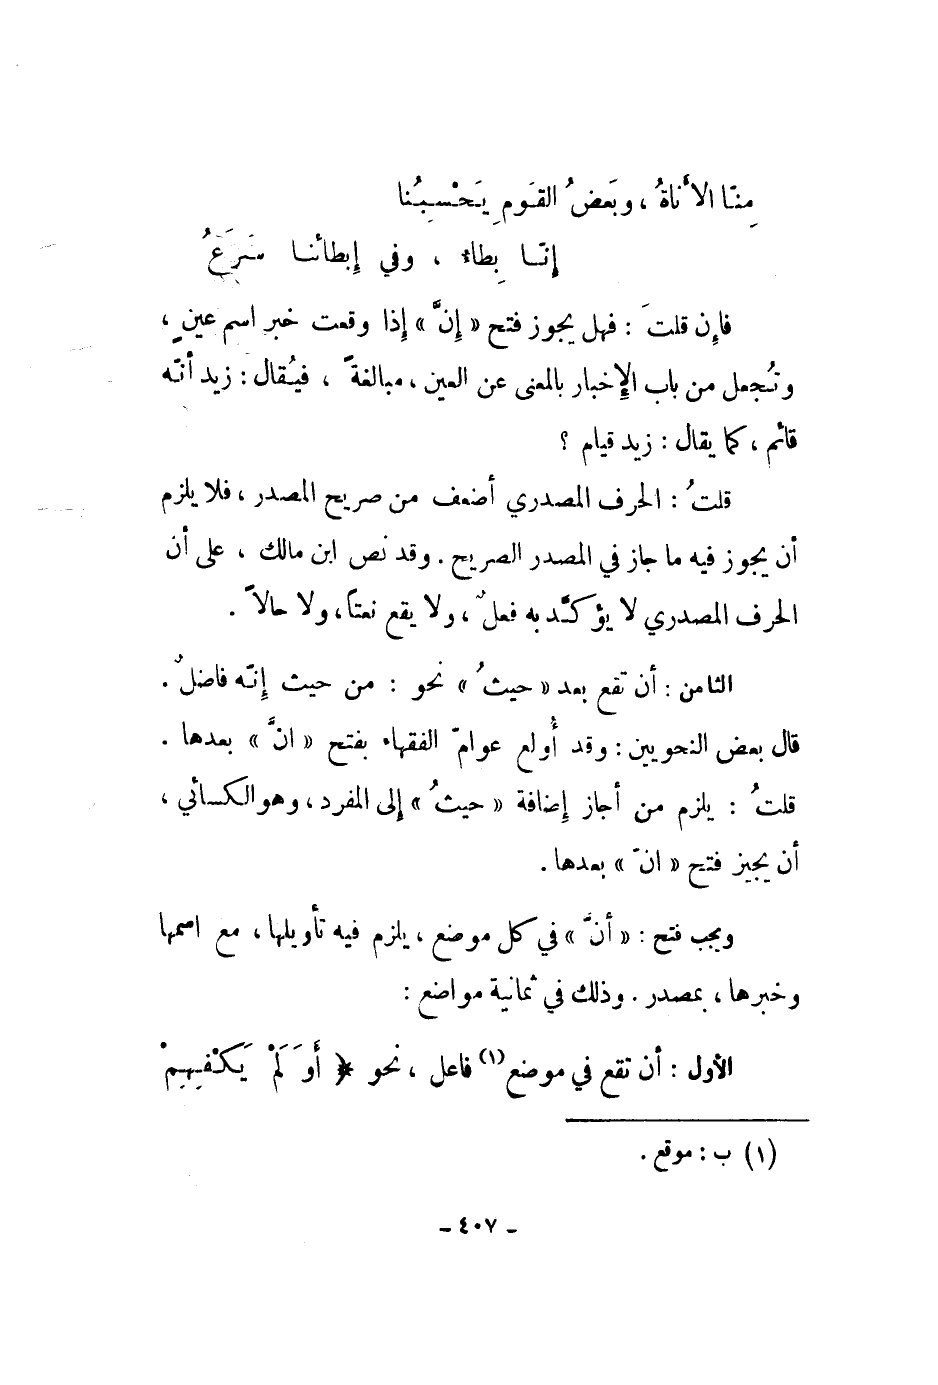 مِنّا الأناةُ ، وبَعضُ القَومِ يَحْسِبُنا
إنّا بِطاء ، وفي إبطائنا سَرَعُ
فإن قلتَ : فهل يجوز فتح « إنَّ » إذا وقعت خبر اسم عينٍ ،
وتُجعل من باب الإخبار بالمعنى عن العين ، مبالغةً ، فيُقال : زيد أنّه
قائم ، كما يقال : زيد قيام ؟
قلتُ : الحرف المصدري أضعف من صريح المصدر ، فلا يلزم
أن يجوز فيه ما جاز في المصدر الصريح . وقد نص ابن مالك ، على أن
الحرف المصدري لا يؤكَّد به فعلٌ ، ولا يقع نعتاً ، ولا حالاً .
الثامن : أن تقع بعد « حيثُ » نحو : من حيث إنّه فاضلٌ .
قال بعض النحويين : وقد أُولع عوامّ الفقهاء بفتح « انَّ » بعدها .
قلتُ : يلزم من أجاز إضافة « حيثُ » إلى المفرد ، وهو الكسائي ،
أن يجيز فتح « انّ » بعدها .
ويجب فتح : « أنَّ » في كل موضع ، يلزم فيه تأويلها ، مع اسمها
وخبرها ، بمصدر . وذلك في ثمانية مواضع :
الأول : أن تقع في موضع(١) فاعل ، نحو ﴿ أَوَ لَمْ يَكْفِهِمْ
(١) ب : موقع .
ـ ٤٠٧ ـ